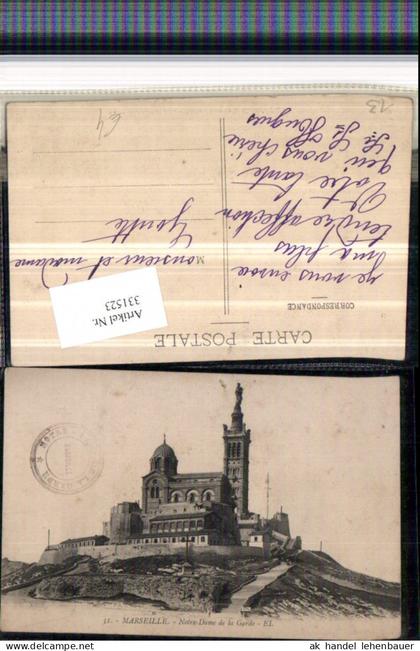 CARTE POSTALE
CORRESPONDANCE
je vous envoie
ma plus
tendre affection
Et
Votre tante
qui vous chérie
Hugues
Monsieur et madame
Artikel Nr.
331523
13
31. - MARSEILLE. - Notre-Dame de la Garde - EL
www.delcampe.net
ak_handel_lehenbauer